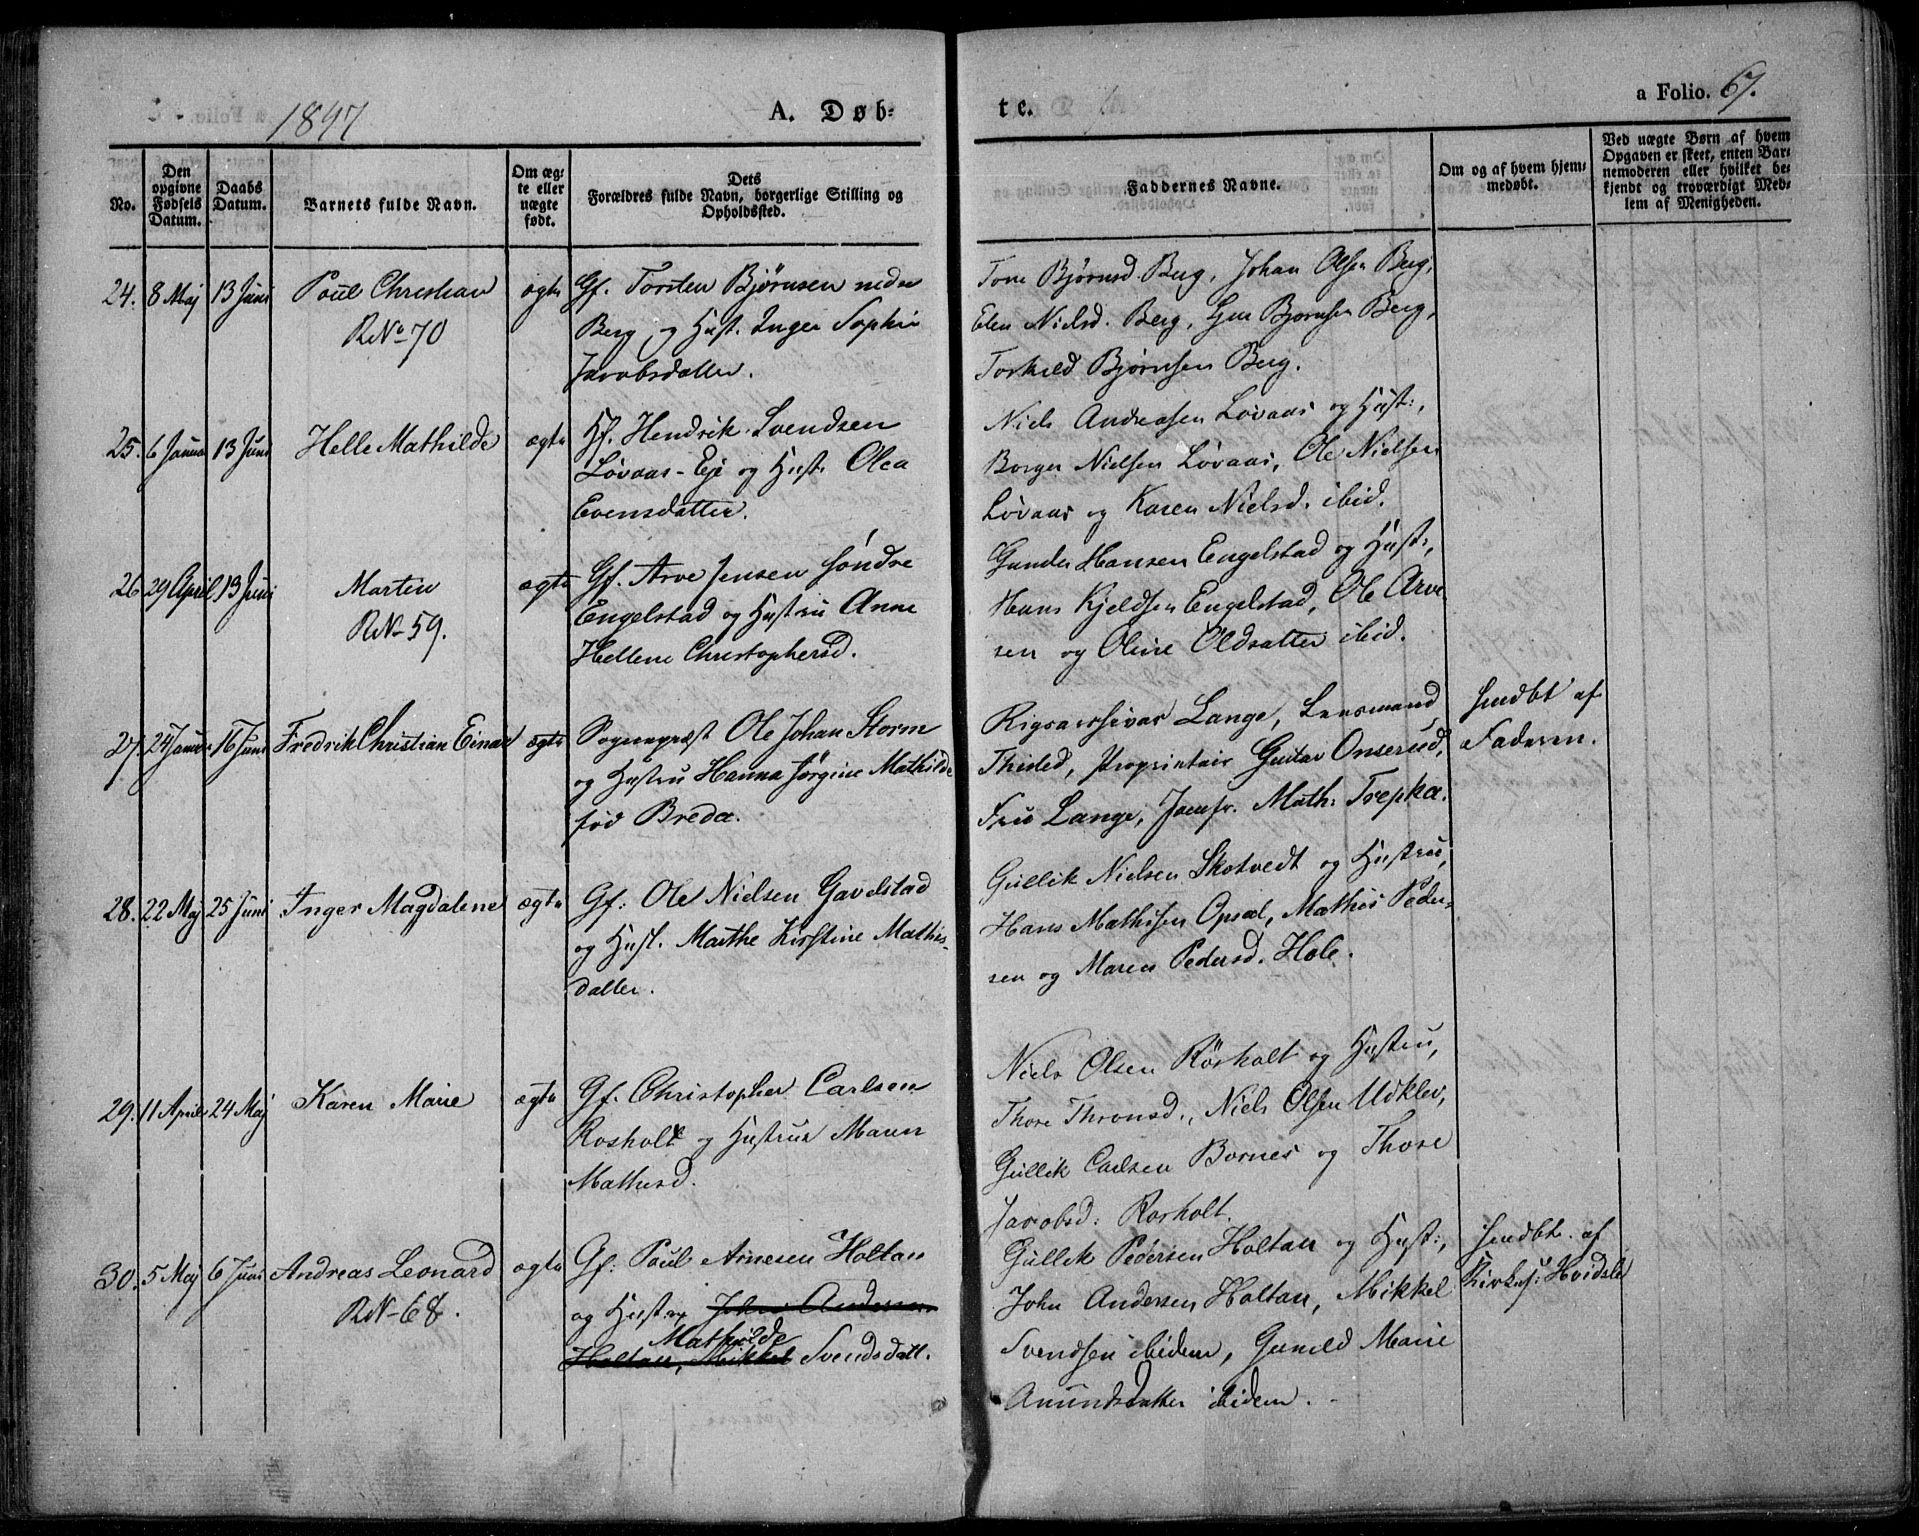 1847
A. Døb-
te.
a Folio. 67.
No.
Den opgivne Fødsels Datum.
Daabs Datum.
Barnets fulde Navn.
Om ægte eller uægte født.
Dets Forældres fulde Navn, borgerlige Stilling og Opholdssted.
Faddernes Navne.
Om og af hvem hjemmedøbt.
Ved uægte Børn af hvem Opgaven er skeet, enten Barnemoderen eller hvilket bekjendt og troværdigt Medlem af Menigheden.
24. 8 Maj 13 Juni Poul Christian ægte Gf. Torsten Bjørnsen nedre
RNo 70
Berg og Hust. Inger Sophie
Jacobsdatter.
Tone Bjørnsd. Berg, Johan Olsen Berg,
Elen Nielsd. Berg, Bjørnsen Berg,
Torkild Bjørnsen Berg.
25. 6 Januar 13 Juni Helle Mathilde ægte Hf. Hendrik Svendsen
Løvaas-Eje og Hust. Olea
Evensdatter.
Niels Andreasen Løvaas og Hust:,
Borger Nielsen Løvaas, Ole Nielsen
Løvaas og Karen Nielsd. ibid.
26 29 April 13 Juni Martin ægte Gf. Arve Jensen søndre
RN 59.
Engelstad og Hustru Anne
Hellene Christophersd.
Gunder Hansen Engelstad og Hust:,
Hans Kjeldsen Engelstad, Ole Arve
sen og Oline Oldsatter ibid.
27. 24 Januar 16 Juni Fredrik Christian Einar ægte Sogneprest Ole Johan Storm
og Hustru Hanna Jørgine Mathilde
fød Breda.
Rigsarchivar Lange, Lensmand
Thisted, Proprietair Gustav Onserud,
Fru Lange, Jomfr. Math: Trepka.
hmdbt af
Faderen.
28. 22 Maj 25 Juni Inger Magdalene ægte Gf: Ole Nielsen Gavelstad
og Hust. Marthe Kirstine Mathis-
datter.
Gullik Nielsen Skotvedt og Hustru,
Hans Mathisen Opsal, Mathis Peder-
sen og Maren Pedersd. Hole.
29. 11 April 24 Maj Karen Marie ægte Gf. Christopher Carlsen
Rosholt og Hustrue Maren
Mathisd.
Niels Olsen Rörholt og Hustru,
Thore Thronsd., Niels Olsen Udklev,
Gullik Carlsen Bornes og Thore
Jacobsd: Rorholt.
30. 5 Maj 6 Juni Andreas Leonard ægte Gf: Poul Arnesen Holtan
RN-68.
og Hustr. John Andersen
Mathilde
Holtan, Mikkel Svendsdatt.
Gullik Pedersen Holtan og Hust:,
John Andersen Holtan, Mikkel
Svendsen ibidem, Gunild Marie
Anundsdatter ibidem.
hmdbt. af
Kirkes: Hvidsle